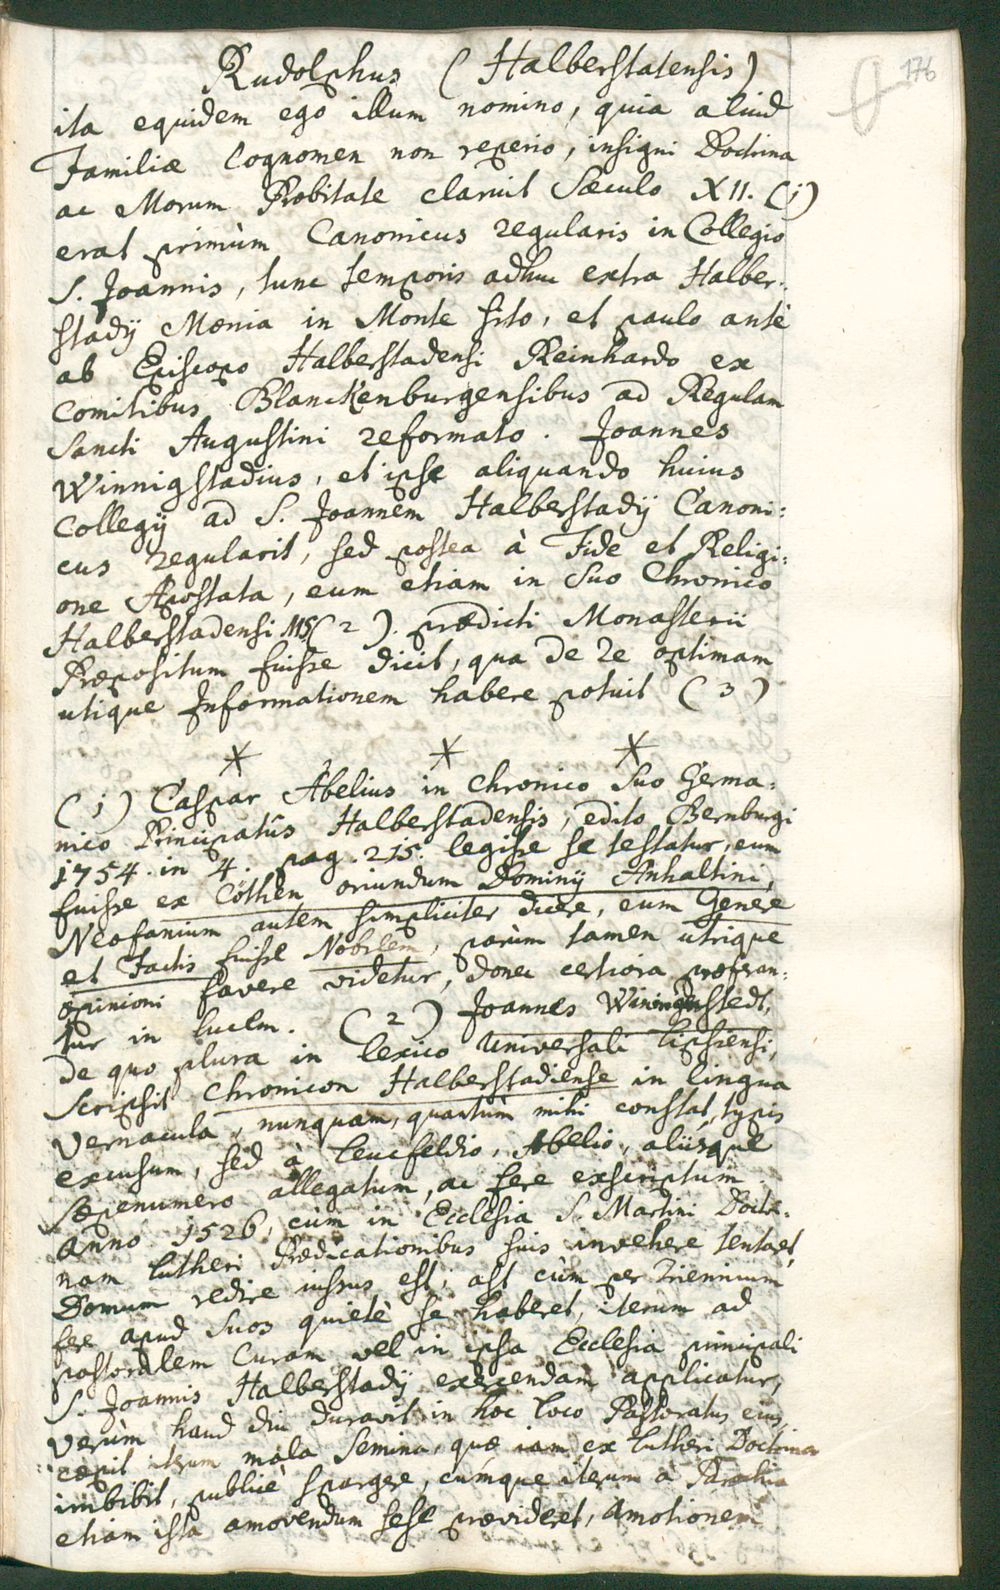 176
Rudolphus (Halberstatensis)
ita equidem ego illum nomino, quia aliud
Familiæ Cognomen non reperio, insigni Doctrina
ac Morum Probitate claruit Sæculo XII. (1)
erat primùm Canonicus regularis in Collegio
S. Joannis, tunc temporis adhuc extra Halber:
stadÿ Mœnia in Monte sito, et paulo antè
ab Episcopo Halberstadensi Reinhardo ex
Comitibus Blanckenburgensibus ad Regulam
Sancti Augustini reformato. Joannes
Winnigstadius, et ipse aliquando huius
Collegÿ ad S. Joannem Halberstadÿ Canoni:
cus regularis, sed postea à Fide et Religi:
one Apostata, eum etiam in Suo Chronico
Halberstadensi MS (2). prædicti Monasterii
Præpositum fuisse dicit, qua de re optimam
utique Informationem habere potuit (3)
* * *
(1) Caspar Abelius in Chronico Suo Germa:
nico Principatûs Halberstadensis, edito Bernburgi
1754. in 4. pag. 215. legisse se testatur, eum
fuisse ex Cöthen oriundum Dominÿ Anhaltini,
Neofanium autem simpliciter dicere, eum Genere
et Factis fuisse Nobilem, parùm tamen utrique
opinioni favere videtur, donec certiora proferan:
tur in lucem. (2) Joannes Winingstedt,
de quo plura in lexico Universali Lipsiensi,
Scripsit Chronicon Halberstadiense in lingua
Vernacula, nunquam, quantùm mihi constat, typis
excusum, sed à Leucfeldio, Abelio, aliisque
sæpenumero allegatum, ac fere exscriptum.
Anno 1526, cùm in Ecclesia S. Martini Doctri:
nam Lutheri Prædicationibus suis invehere tentaret,
Domum redire iussus est; ast cùm per Triennium
fere apud Suos quietè se haberet, iterum ad
pastoralem Curam vel in ipsa Ecclesia principali
S. Joannis Halberstadÿ exercendam applicatur,
Verùm haud diu duravit in hoc loco Pastoratus eius,
cœpit iterum mala Semina, quæ iam ex Lutheri Doctrina
imbibit, publicè spargere, cúmque iterum à Parochia
etiam ista amovendum sese prævideret, amotionem